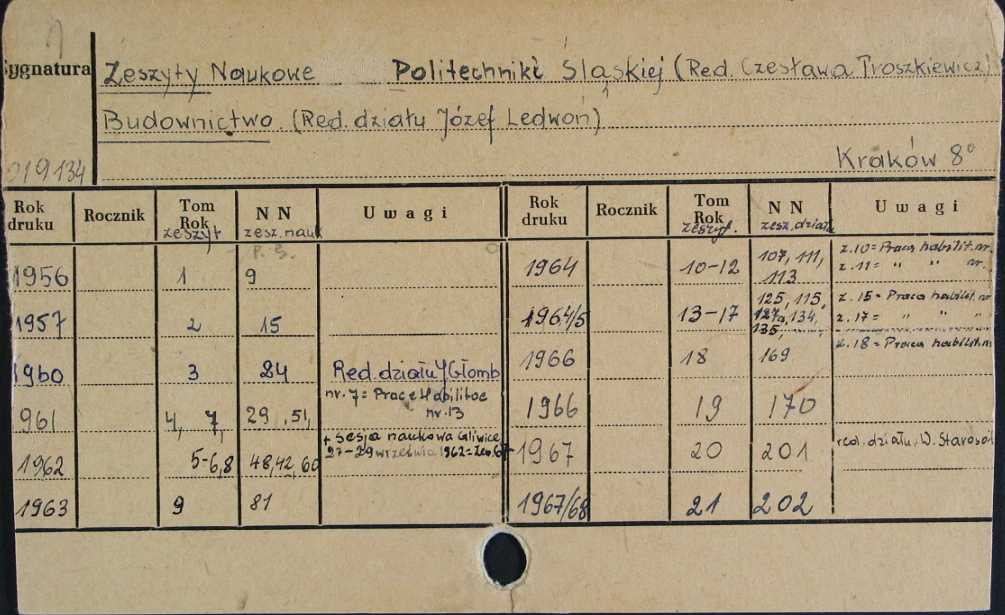 Sygnatura
Zeszyty Naukowe Politechniki Śląskiej (Red. Czesława Troszkiewicz)
Budownictwo. (Red. działu Józef Ledwoń)
Kraków 8°
019134
Rok druku Rocznik Tom Rok zeszyt NN zesz. nauk P. Ś. Uwagi
1956 1 9
1957 2 15
1960 3 24 Red. działu J Głomb
961 4, 7, 29, 51, nr. 7 = Prace Habilitac nr. 13
1962 5-6,8 48,42,60 + Sesja naukowa Gliwice 27-29 września 1962 =
1963 9 81
Rok druku Rocznik Tom Rok zeszyt. NN zesz. działu Uwagi
1964 10-12 107, 111, 113 z. 10 = Praca habilit. nr.
z. 11 = " " nr.
1964/5 13-17 125, 115, 134, 135, z. 15 = Praca habilit. nr
z. 17 = " " "
1966 18 169 z. 18 = Praca habilit. n
1966 19 170
1967 20 201 red. działu, W. Starosol
1967/68 21 202